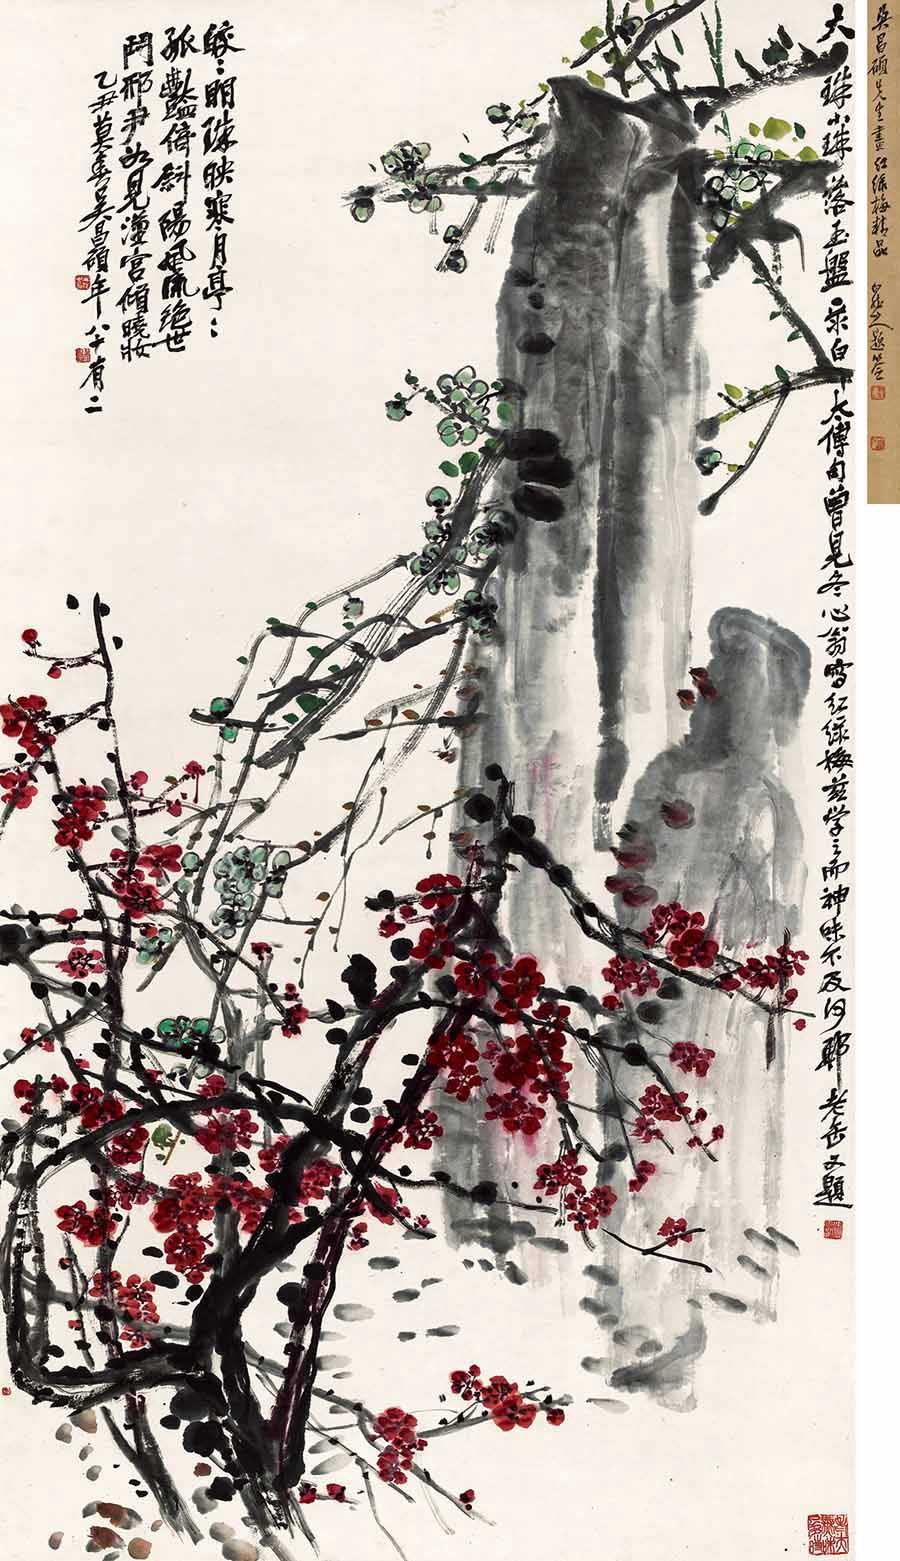 吳昌碩先生畫紅綠梅精品 題簽
大珠小珠落玉盤 白太傅句曾見冬心翁寫紅綠梅茲學之而神味不及何耶老缶又題
皎〻明珠映寒月亭〻
孤豔倚斜陽風流絕世
鬥邢尹如見漢宮傾曉妝
乙丑莫春吳昌碩年八十有二